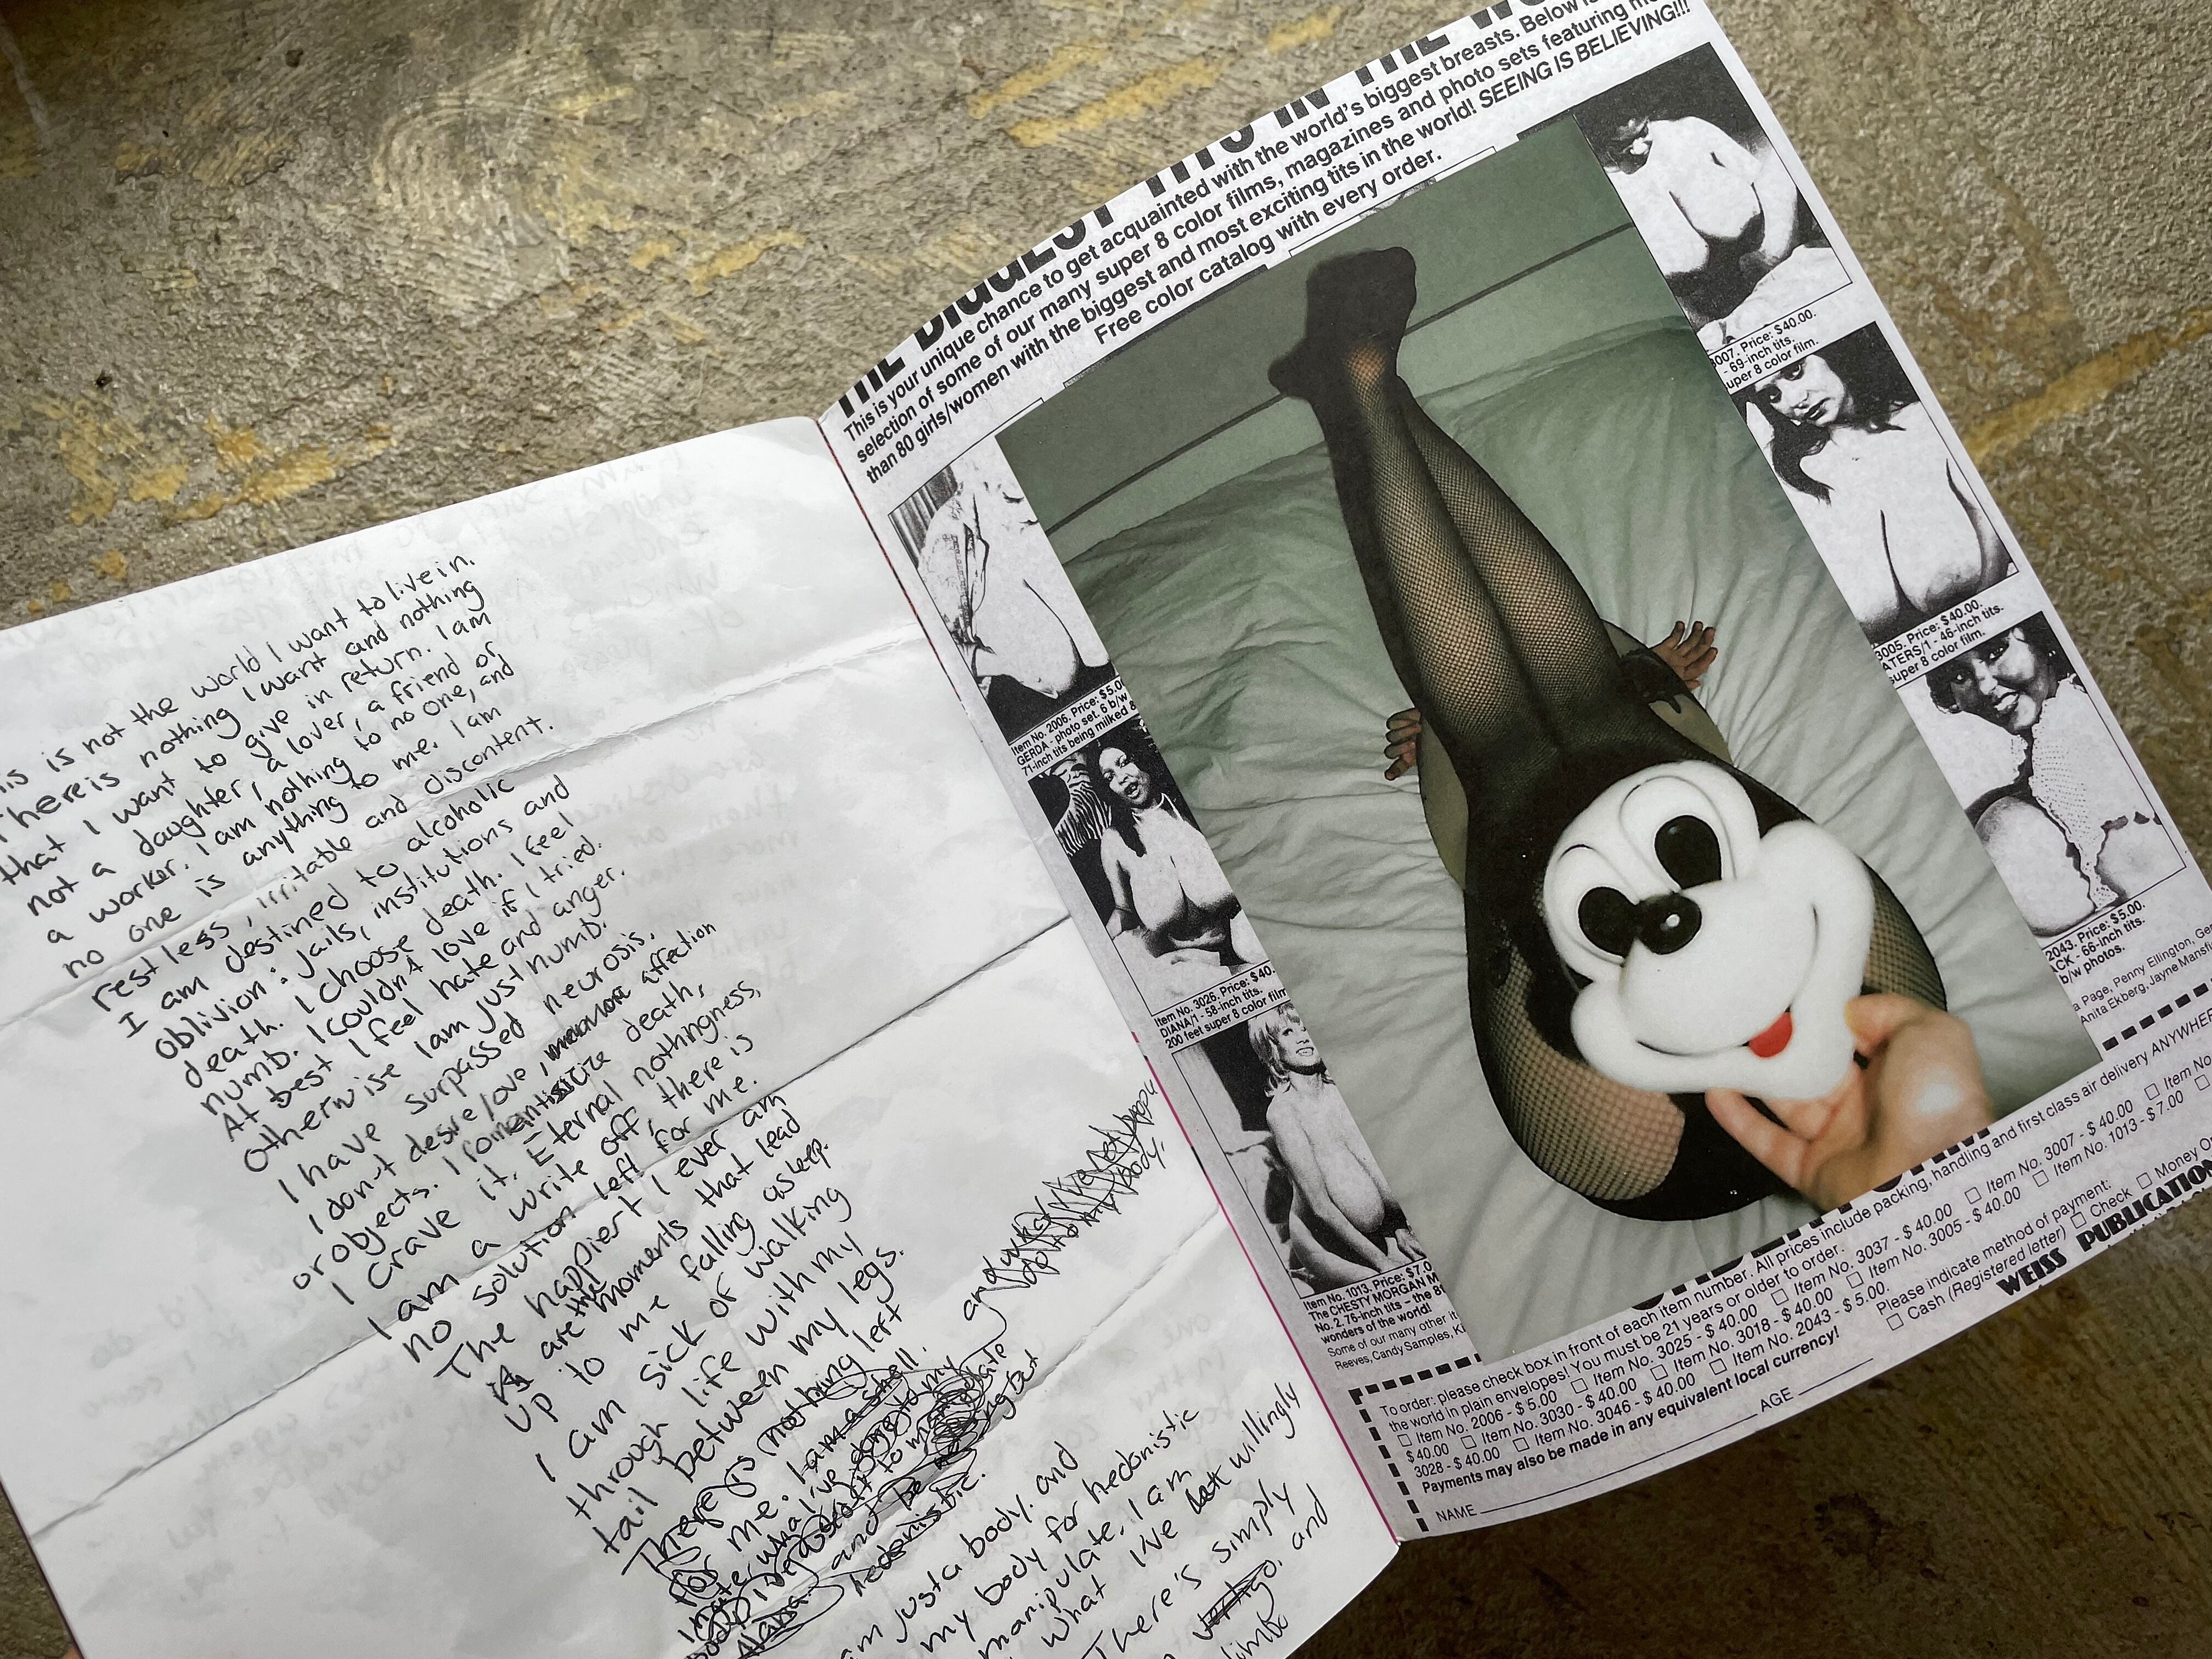 This is not the world I want to live in.
There is nothing I want and nothing
that I want to give in return. I am
not a daughter, a lover, a friend or
a worker. I am nothing to no one, and
no one is anything to me. I am
restless, irritable and discontent.
I am destined to alcoholic
oblivion: jails, institutions and
death. I choose death. I feel
numb. I couldn't love if I tried.
At best I feel hate and anger.
Otherwise I am just numb.
I have surpassed neurosis.
I don't desire love, affection
or objects. I romanticize death,
I crave it. Eternal nothingness,
I am a write off, there is
no solution left for me.
The happiest I ever am
are the moments that lead
up to me falling asleep.
I am sick of walking
through life with my
tail between my legs.
There is nothing left
for me. I am a shell.
and be
hedonistic.
am just a body, and
my body for hedonistic
manipulate. I am
what I've willingly
There's simply
vertigo, and
limbo
THE BIGGEST TITS IN THE WO
This is your unique chance to get acquainted with the world's biggest breasts. Below is
selection of some of our many super 8 color films, magazines and photo sets featuring mo
than 80 girls/women with the biggest and most exciting tits in the world! SEEING IS BELIEVING!!!
Free color catalog with every order.
Item No. 2006. Price: $5.00
GERDA - photo set. 6 b/w
71-inch tits being milked &
Item No. 3026. Price: $40.
DIANA/1 - 58-inch tits.
200 feet super 8 color film
Item No. 1013. Price: $7.0
The CHESTY MORGAN M
No. 2. 76-inch tits – the 8t
wonders of the world!
Some of our many other it
Reeves, Candy Samples, Ki
3007. Price: $40.00.
- 69-inch tits.
uper 8 color film.
3005. Price: $40.00.
ATERS/1 - 46-inch tits.
super 8 color film.
2043. Price: $5.00.
ACK - 66-inch tits.
b/w photos.
a Page, Penny Ellington, Geo
Anita Ekberg, Jayne Mansfi
To order: please check box in front of each item number. All prices include packing, handling and first class air delivery ANYWHERE
the world in plain envelopes! You must be 21 years or older to order.
Item No. 2006 - $ 5.00 Item No. 3025 - $ 40.00 Item No. 3037 - $ 40.00 Item No. 3007 - $ 40.00 Item No.
$ 40.00 Item No. 3030 - $ 40.00 Item No. 3018 - $ 40.00 Item No. 3005 - $ 40.00 Item No. 1013 - $ 7.00
3028 - $ 40.00 Item No. 3046 - $ 40.00 Item No. 2043 - $ 5.00.
Payments may also be made in any equivalent local currency!
Please indicate method of payment:
Cash (Registered letter) Check Money O
WEISS PUBLICATION
NAME AGE